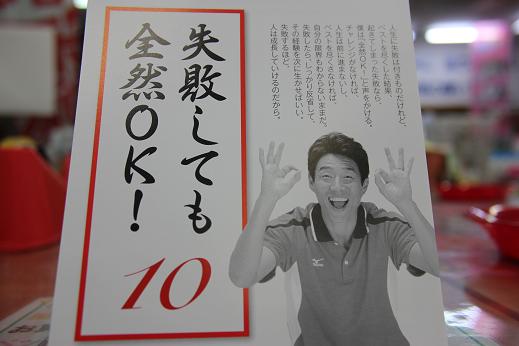 失敗しても
全然OK!
10
人生に失敗は付きものだけれど、
ベストを尽くした結果、
起きてしまった失敗なら、
僕は「全然OK!」と声をかける。
チャレンジがなければ、
人生は前に進まないし、
ベストを尽くさなければ、
自分の限界もわからないままだ。
失敗したらしっかり反省して、
その経験を次に生かせばいい。
失敗するほど、
人は成長していけるのだから。